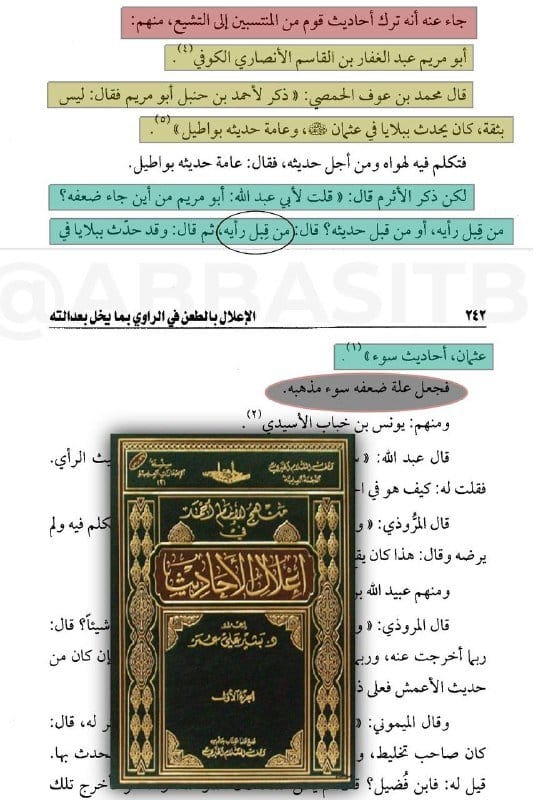 جاء عنه أنه ترك أحاديث قوم من المنتسبين إلى التشيع، منهم:
أبو مريم عبد الغفار بن القاسم الأنصاري الكوفي(٤).
قال محمد بن عوف الحمصي: «ذكر لأحمد بن حنبل أبو مريم فقال: ليس
بثقة، كان يحدث ببلايا في عثمان ﷺ، وعامة حديثه بواطيل»(٥).
فتكلم فيه لهواه ومن أجل حديثه، فقال: عامة حديثه بواطيل.
لكن ذكر الأثرم قال: «قلت لأبي عبد الله: أبو مريم من أين جاء ضعفه؟
من قِبل رأيه، أو من قبل حديثه؟ قال: من قِبل رأيه، ثم قال: وقد حدّث ببلايا في
@ABBASITB
٢٤٢ الإعلال بالطعن في الراوي بما يخل بعدالته
عثمان، أحاديث سوء»(١).
فجعل علة ضعفه سوء مذهبه.
ومنهم: يونس بن خباب الأسيدي(٢).
قال عبد الله: «
يث الرأي.
فقلت له: كيف هو في
قال المرُّوذي: «
كلم فيه ولم
يرضه وقال: هذا كان يق
ومنهم عبيد الله بن
قال المروذي: «
شيئاً؟ قال:
ربما أخرجت عنه، وربم
إن كان من
حديث الأعمش فعلى ذ
وقال الميموني: «
ر له، قال:
كان صاحب تخليط، و
حدث بها.
قيل له: فابن فُضيل؟ قال
خرج تلك
منهج الإمام أحمد
في
إعلال الأحاديث
إعداد
د. بشير علي عمر
الجزء الأول